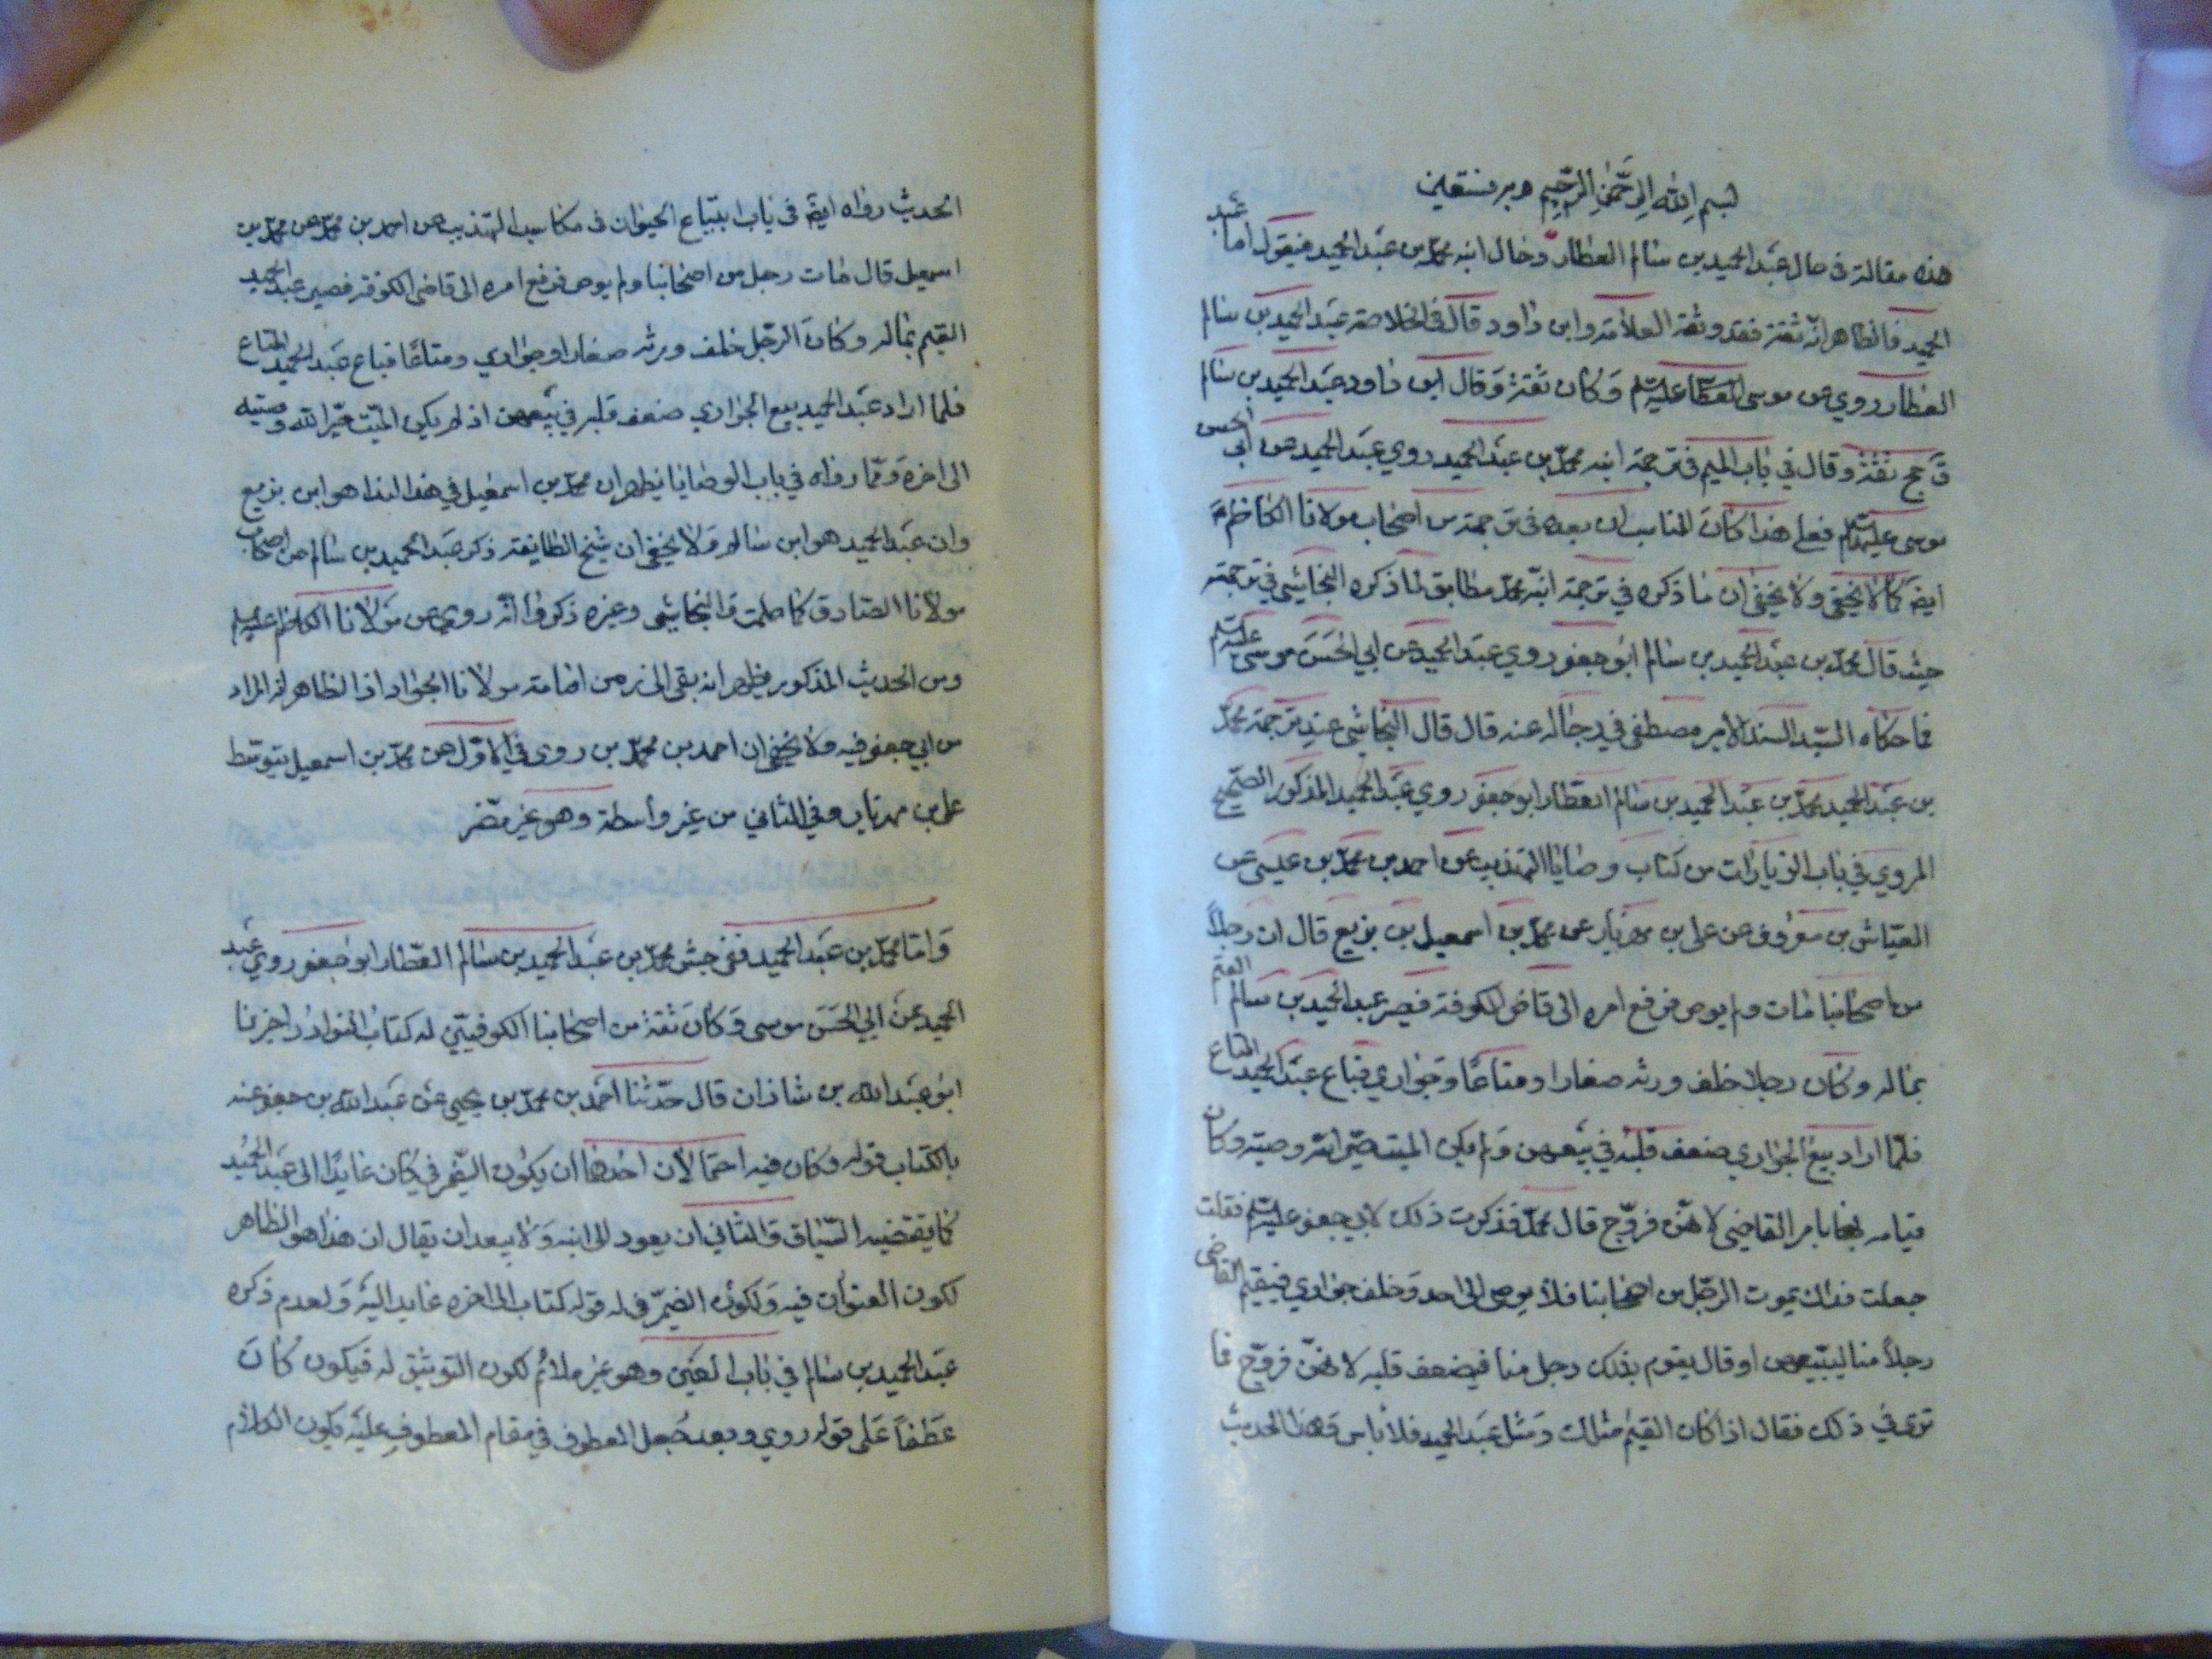 بسم الله الرحمن الرحيم وبه نستعين
هذه مقالة في حال عبد الحميد بن سالم العطار وحال ابنه محمد بن عبد الحميد فنقول اما عبد
الحميد فالظاهر انه ثقة فقد وثقه العلامة وابن داود قال في الخلاصة عبد الحميد بن سالم
العطار روي عن موسى عليه السلم وكان ثقة وقال ابن داود عبد الحميد بن سالم
ق جخ ثقة وقال في باب الميم في ترجمة ابنه محمد بن عبد الحميد روي عبد الحميد عن ابي الحسن
موسى عليه السلم فعلى هذا كان المناسب ان يعده في ترجمته من اصحاب مولانا الكاظم
ايضً كما لا يخفى ولا يخفى ان ما ذكره في ترجمة ابنه محمد مطابق لما ذكره النجاشي في ترجمته
حيث قال محمد بن عبد الحميد بن سالم ابو جعفر روي عبد الحميد عن ابي الحسن موسى عليه السلم
فما حكاه السيد السند الامير مصطفى في رجاله عنه قال قال النجاشي عند ترجمة محمد
بن عبد الحميد محمد بن عبد الحميد بن سالم العطار ابو جعفر روي عبد الحميد المذكور الصحيح
المروي في باب الزيارات من كتاب وصايا التهذيب عن احمد بن محمد بن عيسى عن
العباس بن معروف عن علي بن مهزيار عن محمد بن اسمعيل بن بزيع قال ان رجلاً
من اصحابنا مات ولم يوص فرفع امره الى قاضي الكوفة فصير عبد الحميد بن سالم القيم
بماله وكان رجلا خلف ورثه صغارا ومتاعًا وجواري فباع عبد الحميد المتاع
فلما اراد بيع الجواري ضعف قلبه في بيعهن ولم يكن الميت صير اليه وصيته وكان
قيامه بها بامر القاضي لانهن فروج قال محمد فذكرت ذلك لابي جعفر عليه السلم فقلت
جعلت فداك يموت الرجل من اصحابنا فلا يوصي الى احد وخلف جواري فيقيم القاضي
رجلاً منا ليبيعهن او قال يقوم بذلك رجل منا فيضعف قلبه لانهن فروج فما
ترى في ذلك فقال اذا كان القيم مثلك ومثل عبد الحميد فلا باس وهذا الحديث
الحديث رواه ايضً في باب ابتياع الحيوان في مكاسب التهذيب عن احمد بن محمد عن محمد بن
اسمعيل قال مات رجل من اصحابنا ولم يوص فرفع امره الى قاضي الكوفة فصير عبد الحميد
القيم بماله وكان الرجل خلف ورثه صغارا وجواري ومتاعًا فباع عبد الحميد المتاع
فلما اراد عبد الحميد بيع الجواري ضعف قلبه في بيعهن اذ لم يكن الميت صير اليه وصيته
الى اخره ومما رواه في باب الوصايا يظهر ان محمد بن اسمعيل في هذا السند هو ابن بزيع
وان عبد الحميد هو ابن سالم ولا يخفى ان شيخ الطايفة ذكر عبد الحميد بن سالم من اصحاب
مولانا الصادق كما علمت والنجاشي وغيره ذكروا انه روي عن مولانا الكاظم عليه السلم
ومن الحديث المذكور يظهر انه بقى الى زمن امامة مولانا الجواد اذ الظاهر ان المراد
من ابي جعفر فيه ولا يخفى ان احمد بن محمد بن روى في الاول عن محمد بن اسمعيل بتوسط
علي بن مهزيار وفي الثاني من غير واسطة وهو غير مضر
واما محمد بن عبد الحميد ففي جش محمد بن عبد الحميد بن سالم العطار ابو جعفر روي عبد
الحميد عن ابي الحسن موسى وكان ثقة من اصحابنا الكوفيين له كتاب النوادر اخبرنا
ابو عبد الله بن شاذان قال حدثنا احمد بن محمد بن يحيى عن عبد الله بن جعفر عنه
بالكتاب قوله وكان فيه احتمالان احدهما ان يكون الضمير في كان عايدًا الى عبد الحميد
كما يقتضيه السياق والثاني ان يعود الى ابنه ولا يبعد ان يقال ان هذا هو الظاهر
لكون العنوان فيه ولكون الضمير في له قوله كتاب الى اخره عايد اليه ولعدم ذكره
عبد الحميد بن سالم في باب العين وهو غير ملائم لكون التوثيق له فيكون كان
عطفاً على قوله روي وبعد جعل المعطوف في مقام المعطوف عليه يكون الكلام